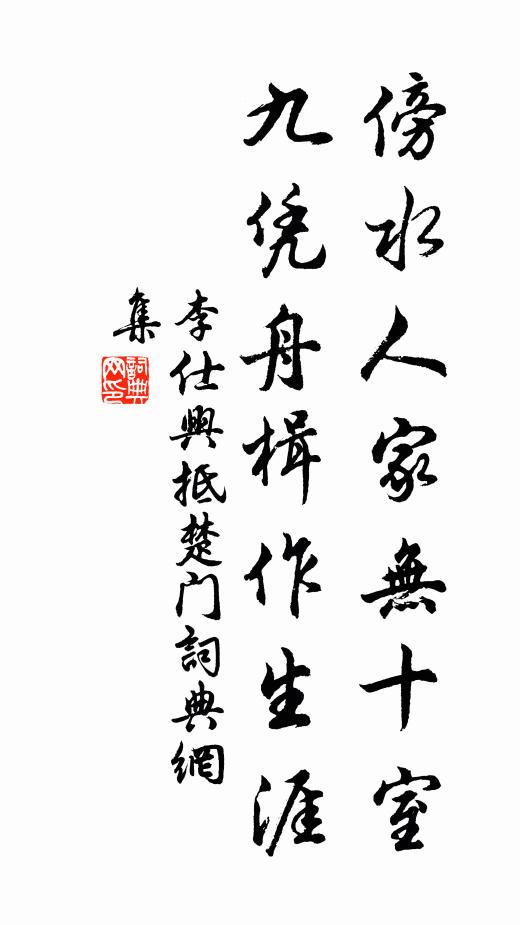 傍水人家無十室
九凭舟楫作生涯
李仕興抵楚门詞典網
集
詞典網印